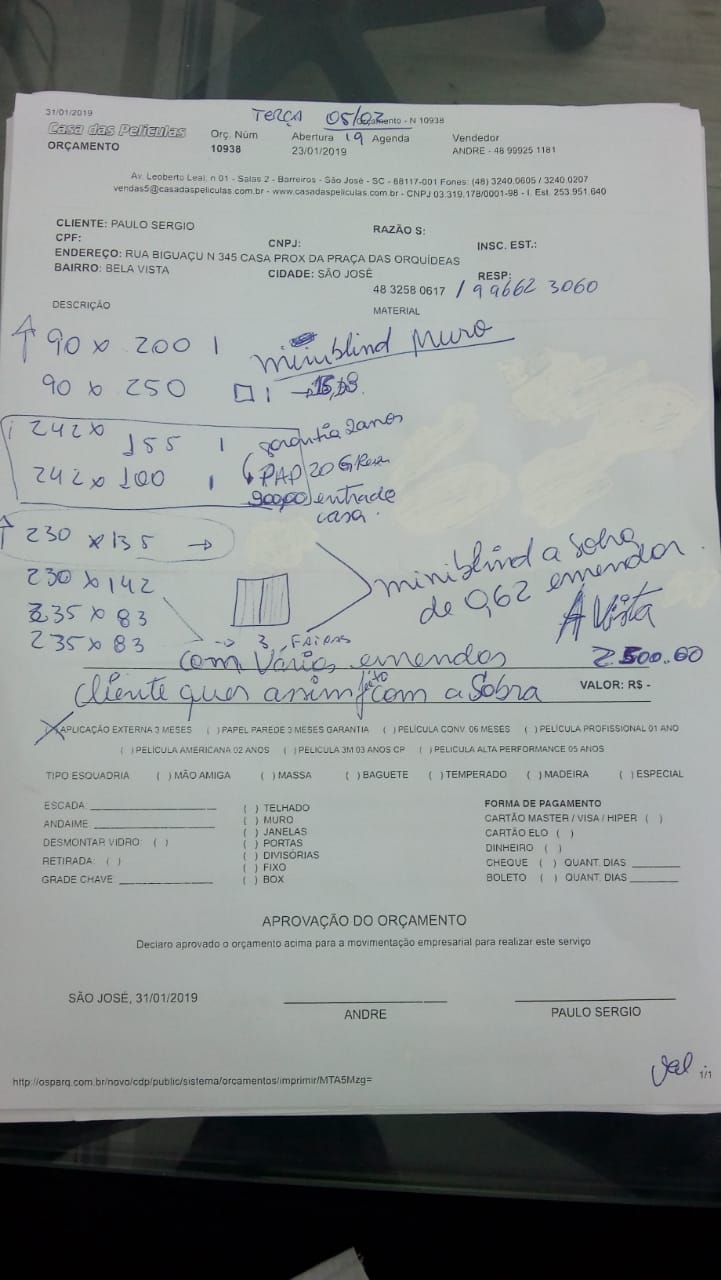 TERÇA 05/02
31/01/2019 Orçamento - N 10938
Casa das Películas Orç. Núm Abertura 19 Agenda Vendedor
ORÇAMENTO 10938 23/01/2019 ANDRE - 48 99925 1181
Av. Leoberto Leal, n 01 - Salas 2 - Barreiros - São José - SC - 88117-001 Fones: (48) 3240.0605 / 3240.0207
vendas5@casadaspeliculas.com.br - www.casadaspeliculas.com.br - CNPJ 03.319.178/0001-98 - I. Est. 253.951.640
CLIENTE: PAULO SERGIO RAZÃO S:
CPF: CNPJ: INSC. EST.:
ENDEREÇO: RUA BIGUAÇU N 345 CASA PROX DA PRAÇA DAS ORQUÍDEAS
BAIRRO: BELA VISTA CIDADE: SÃO JOSÉ RESP:
48 3258 0617 / 99662 3060
DESCRIÇÃO MATERIAL
90 x 200 1 miniblind Muro
90 x 250 1
242 x 155 1 garantia 2 anos
242 x 100 1 PAP 20 G
900,00 entrada
casa.
230 x 135 →
230 x 142 miniblind a Sobra
235 x 83 de 0,62 emendar.
235 x 83 A Vista
→ 3 FAIXAS
com Vários emendos 2.500.00
cliente quer assim feito com a Sobra VALOR: R$ -
(X) APLICAÇÃO EXTERNA 3 MESES ( ) PAPEL PAREDE 3 MESES GARANTIA ( ) PELÍCULA CONV 06 MESES ( ) PELÍCULA PROFISSIONAL 01 ANO
( ) PELÍCULA AMERICANA 02 ANOS ( ) PELICULA 3M 03 ANOS CP ( ) PELICULA ALTA PERFORMANCE 05 ANOS
TIPO ESQUADRIA ( ) MÃO AMIGA ( ) MASSA ( ) BAGUETE ( ) TEMPERADO ( ) MADEIRA ( ) ESPECIAL
ESCADA: ( ) TELHADO FORMA DE PAGAMENTO
ANDAIME: ( ) MURO CARTÃO MASTER / VISA / HIPER ( )
( ) JANELAS CARTÃO ELO ( )
DESMONTAR VIDRO: ( ) ( ) PORTAS DINHEIRO ( )
RETIRADA: ( ) ( ) DIVISÓRIAS CHEQUE ( ) QUANT. DIAS
( ) FIXO
GRADE CHAVE: ( ) BOX BOLETO ( ) QUANT. DIAS
APROVAÇÃO DO ORÇAMENTO
Declaro aprovado o orçamento acima para a movimentação empresarial para realizar este serviço
SÃO JOSÉ, 31/01/2019
ANDRE PAULO SERGIO
Val
http://osparq.com.br/novo/cdp/public/sistema/orcamentos/imprimir/MTA5Mzg= 1/1